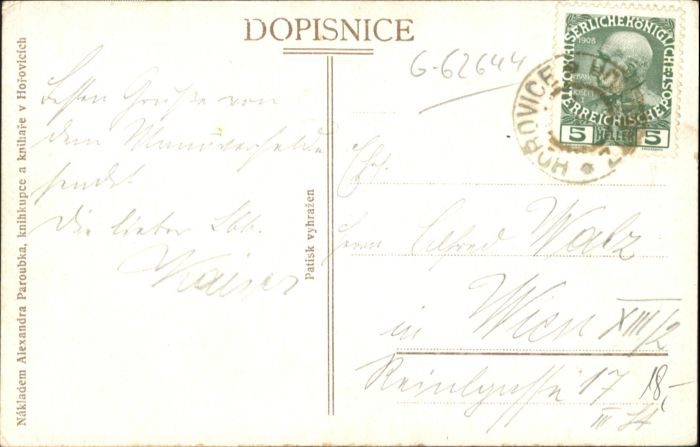 DOPISNICE
G-62644
Besten Grüße von
dem Manöverfelde
sendet
Die lieber
Kaiser
Nákladem Alexandra Paroubka, knihkupce a knihaře v Hořovicích
Patisk vyhražen
KAISERLICHE KÖNIGLICHE
ÖSTERREICHISCHE POST
1908
5 HELLER 5
HOŘOVICE
Herrn Alfred Walz
in Wien XIII/2
17
III St
18,-